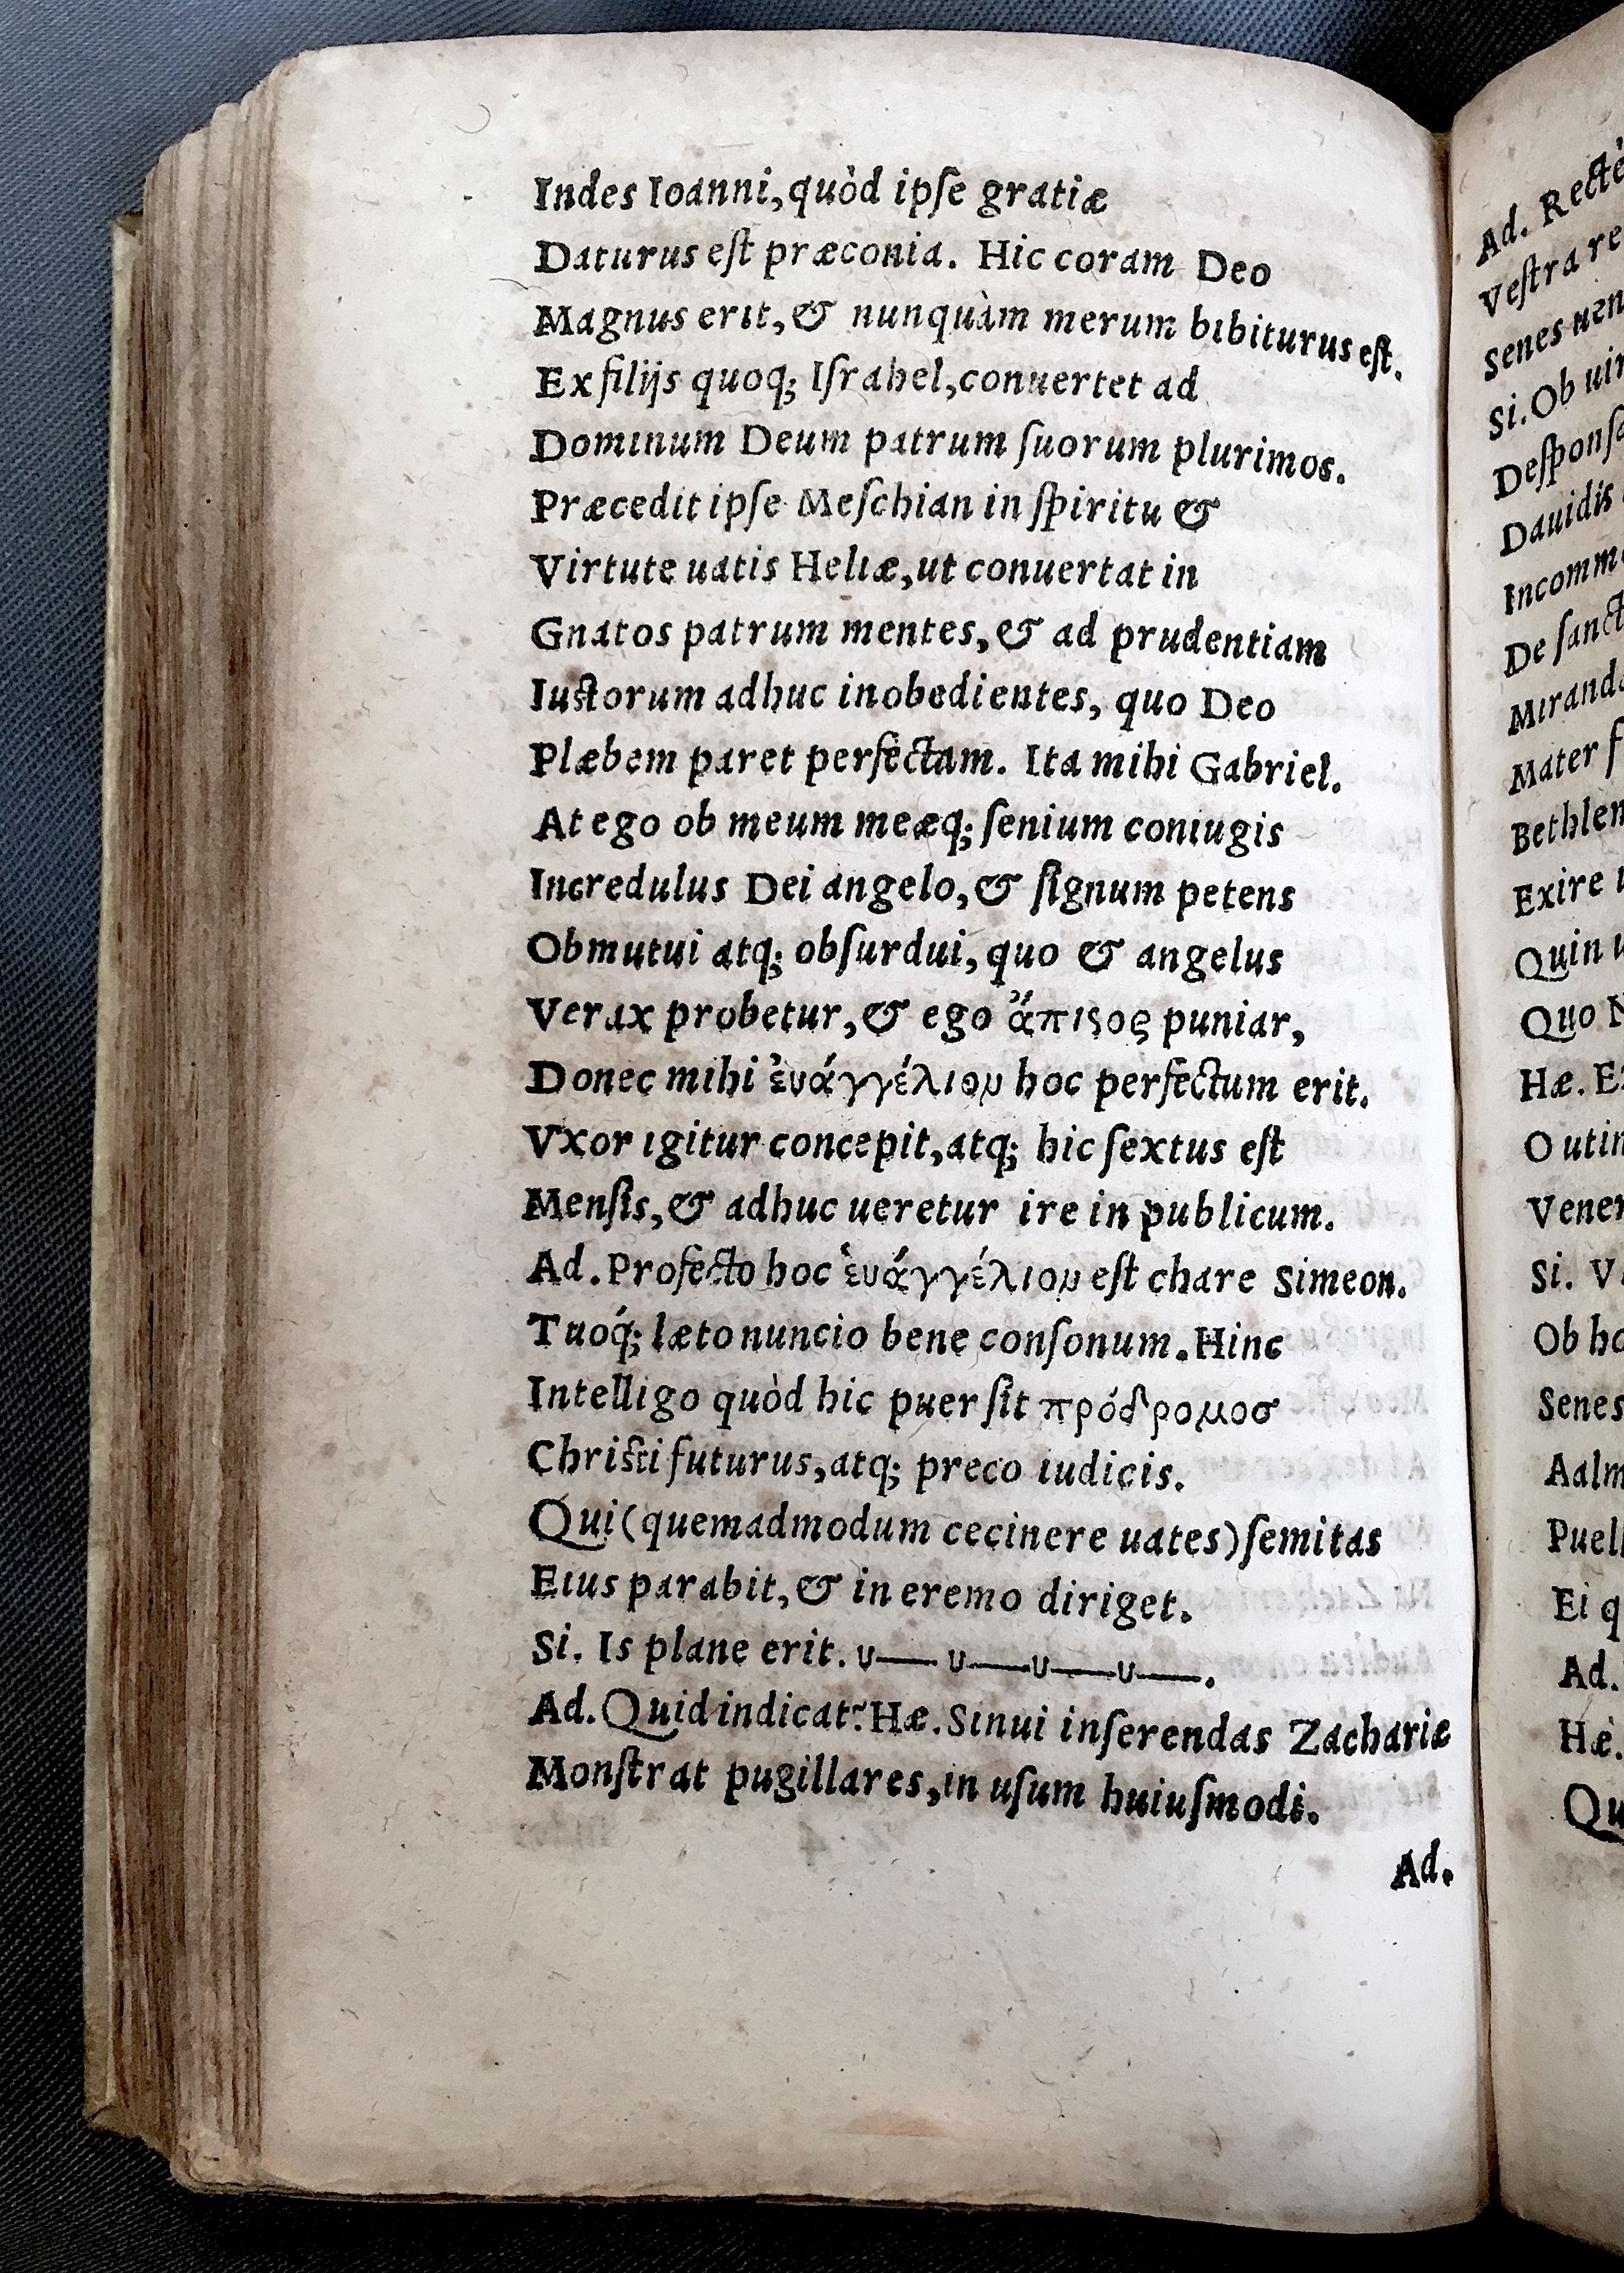 Indes Ioanni, quòd ipſe gratiæ
Daturus eſt præconia. Hic coram Deo
Magnus erit, & nunquàm merum bibiturus eſt.
Ex filijs quoq; Iſrahel, conuertet ad
Dominum Deum patrum ſuorum plurimos.
Præcedit ipſe Meſchian in ſpiritu &
Virtute uatis Heliæ, ut conuertat in
Gnatos patrum mentes, & ad prudentiam
Iuſtorum adhuc inobedientes, quo Deo
Plæbem paret perfectam. Ita mihi Gabriel.
At ego ob meum meæq; ſenium coniugis
Incredulus Dei angelo, & ſignum petens
Obmutui atq; obſurdui, quo & angelus
Verax probetur, & ego ἄπιςος puniar,
Donec mihi ἐυάγγέλιον hoc perfectum erit.
Vxor igitur concepit, atq; hic ſextus eſt
Menſis, & adhuc ueretur ire in publicum.
Ad. Profecto hoc ἐυάγγέλιον eſt chare Simeon.
Tuoq́; læto nuncio bene conſonum. Hinc
Intelligo quòd hic puer ſit πρόδρομοσ
Chriſti futurus, atq; preco iudicis.
Qui (quemadmodum cecinere uates) ſemitas
Eius parabit, & in eremo diriget.
Si. Is plane erit. ∪— ∪—∪—∪—.
Ad. Quid indicat? Hæ. Sinui inſerendas Zachariæ
Monſtrat pugillares, in uſum huiuſmodi.
Ad.
Ad. Rectè
Veſtra re
Senes uen
Si. Ob uir
Deſponſa
Dauidis
Incommo
De ſanct
Miranda
Mater f
Bethlem
Exire
Quin u
Quo N
Hæ. E
O utin
Vener
Si. V
Ob ho
Senes
Aalm
Puell
Ei q
Ad.
Hæ.
Qu